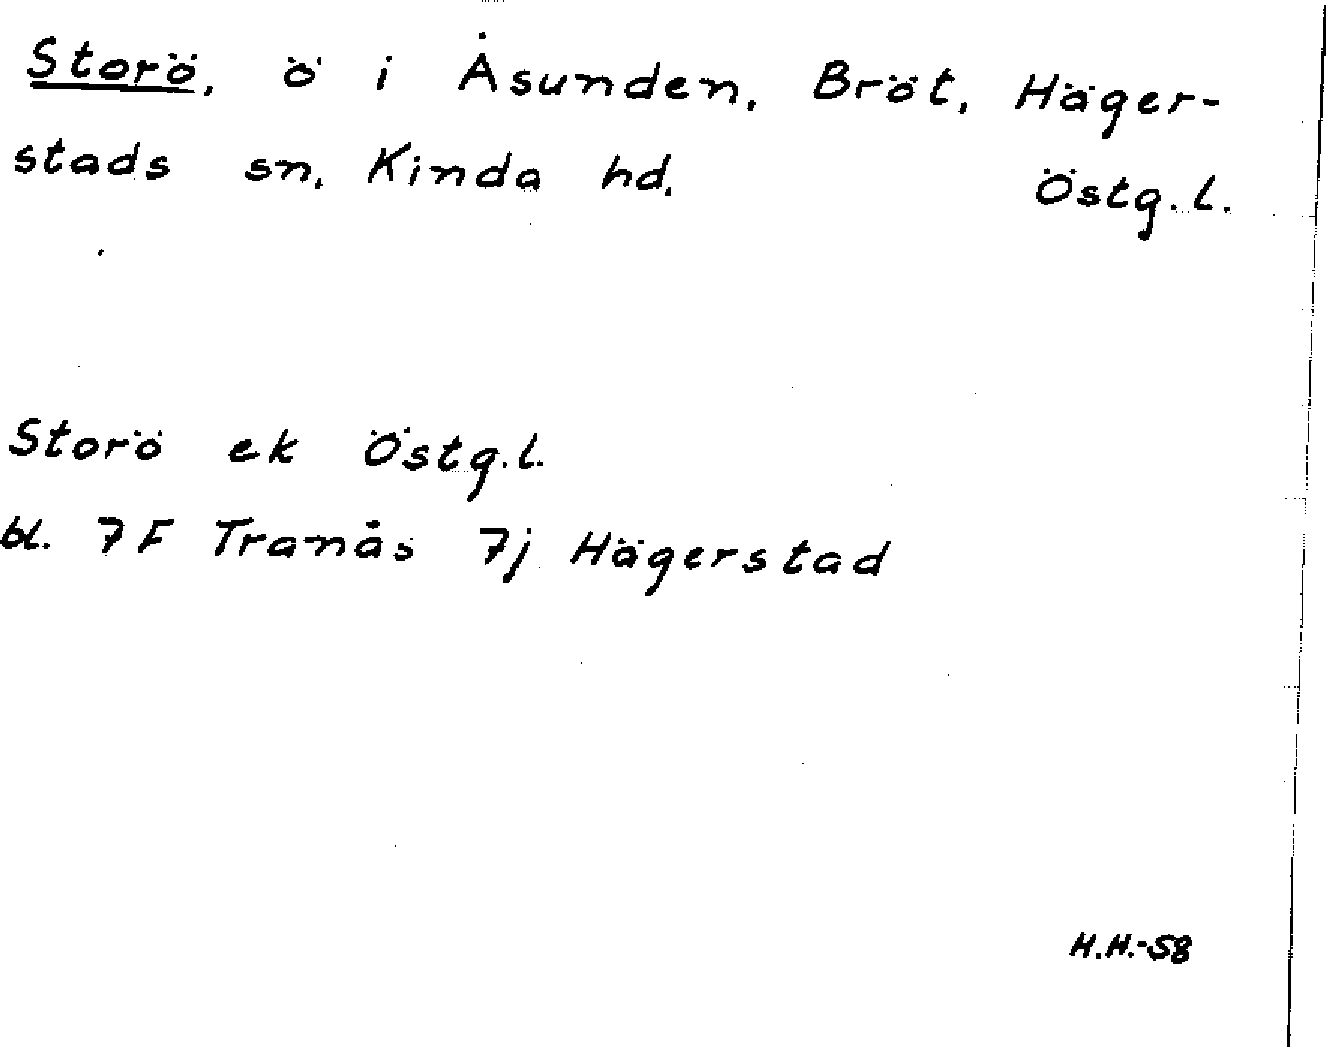 Storö, ö i Åsunden, Bröt, Häger-
stads sn, Kinda hd. Östg. l.
Storö ek Östg. l.
bl. 7F Tranås 7j Hägerstad
H.H.-58